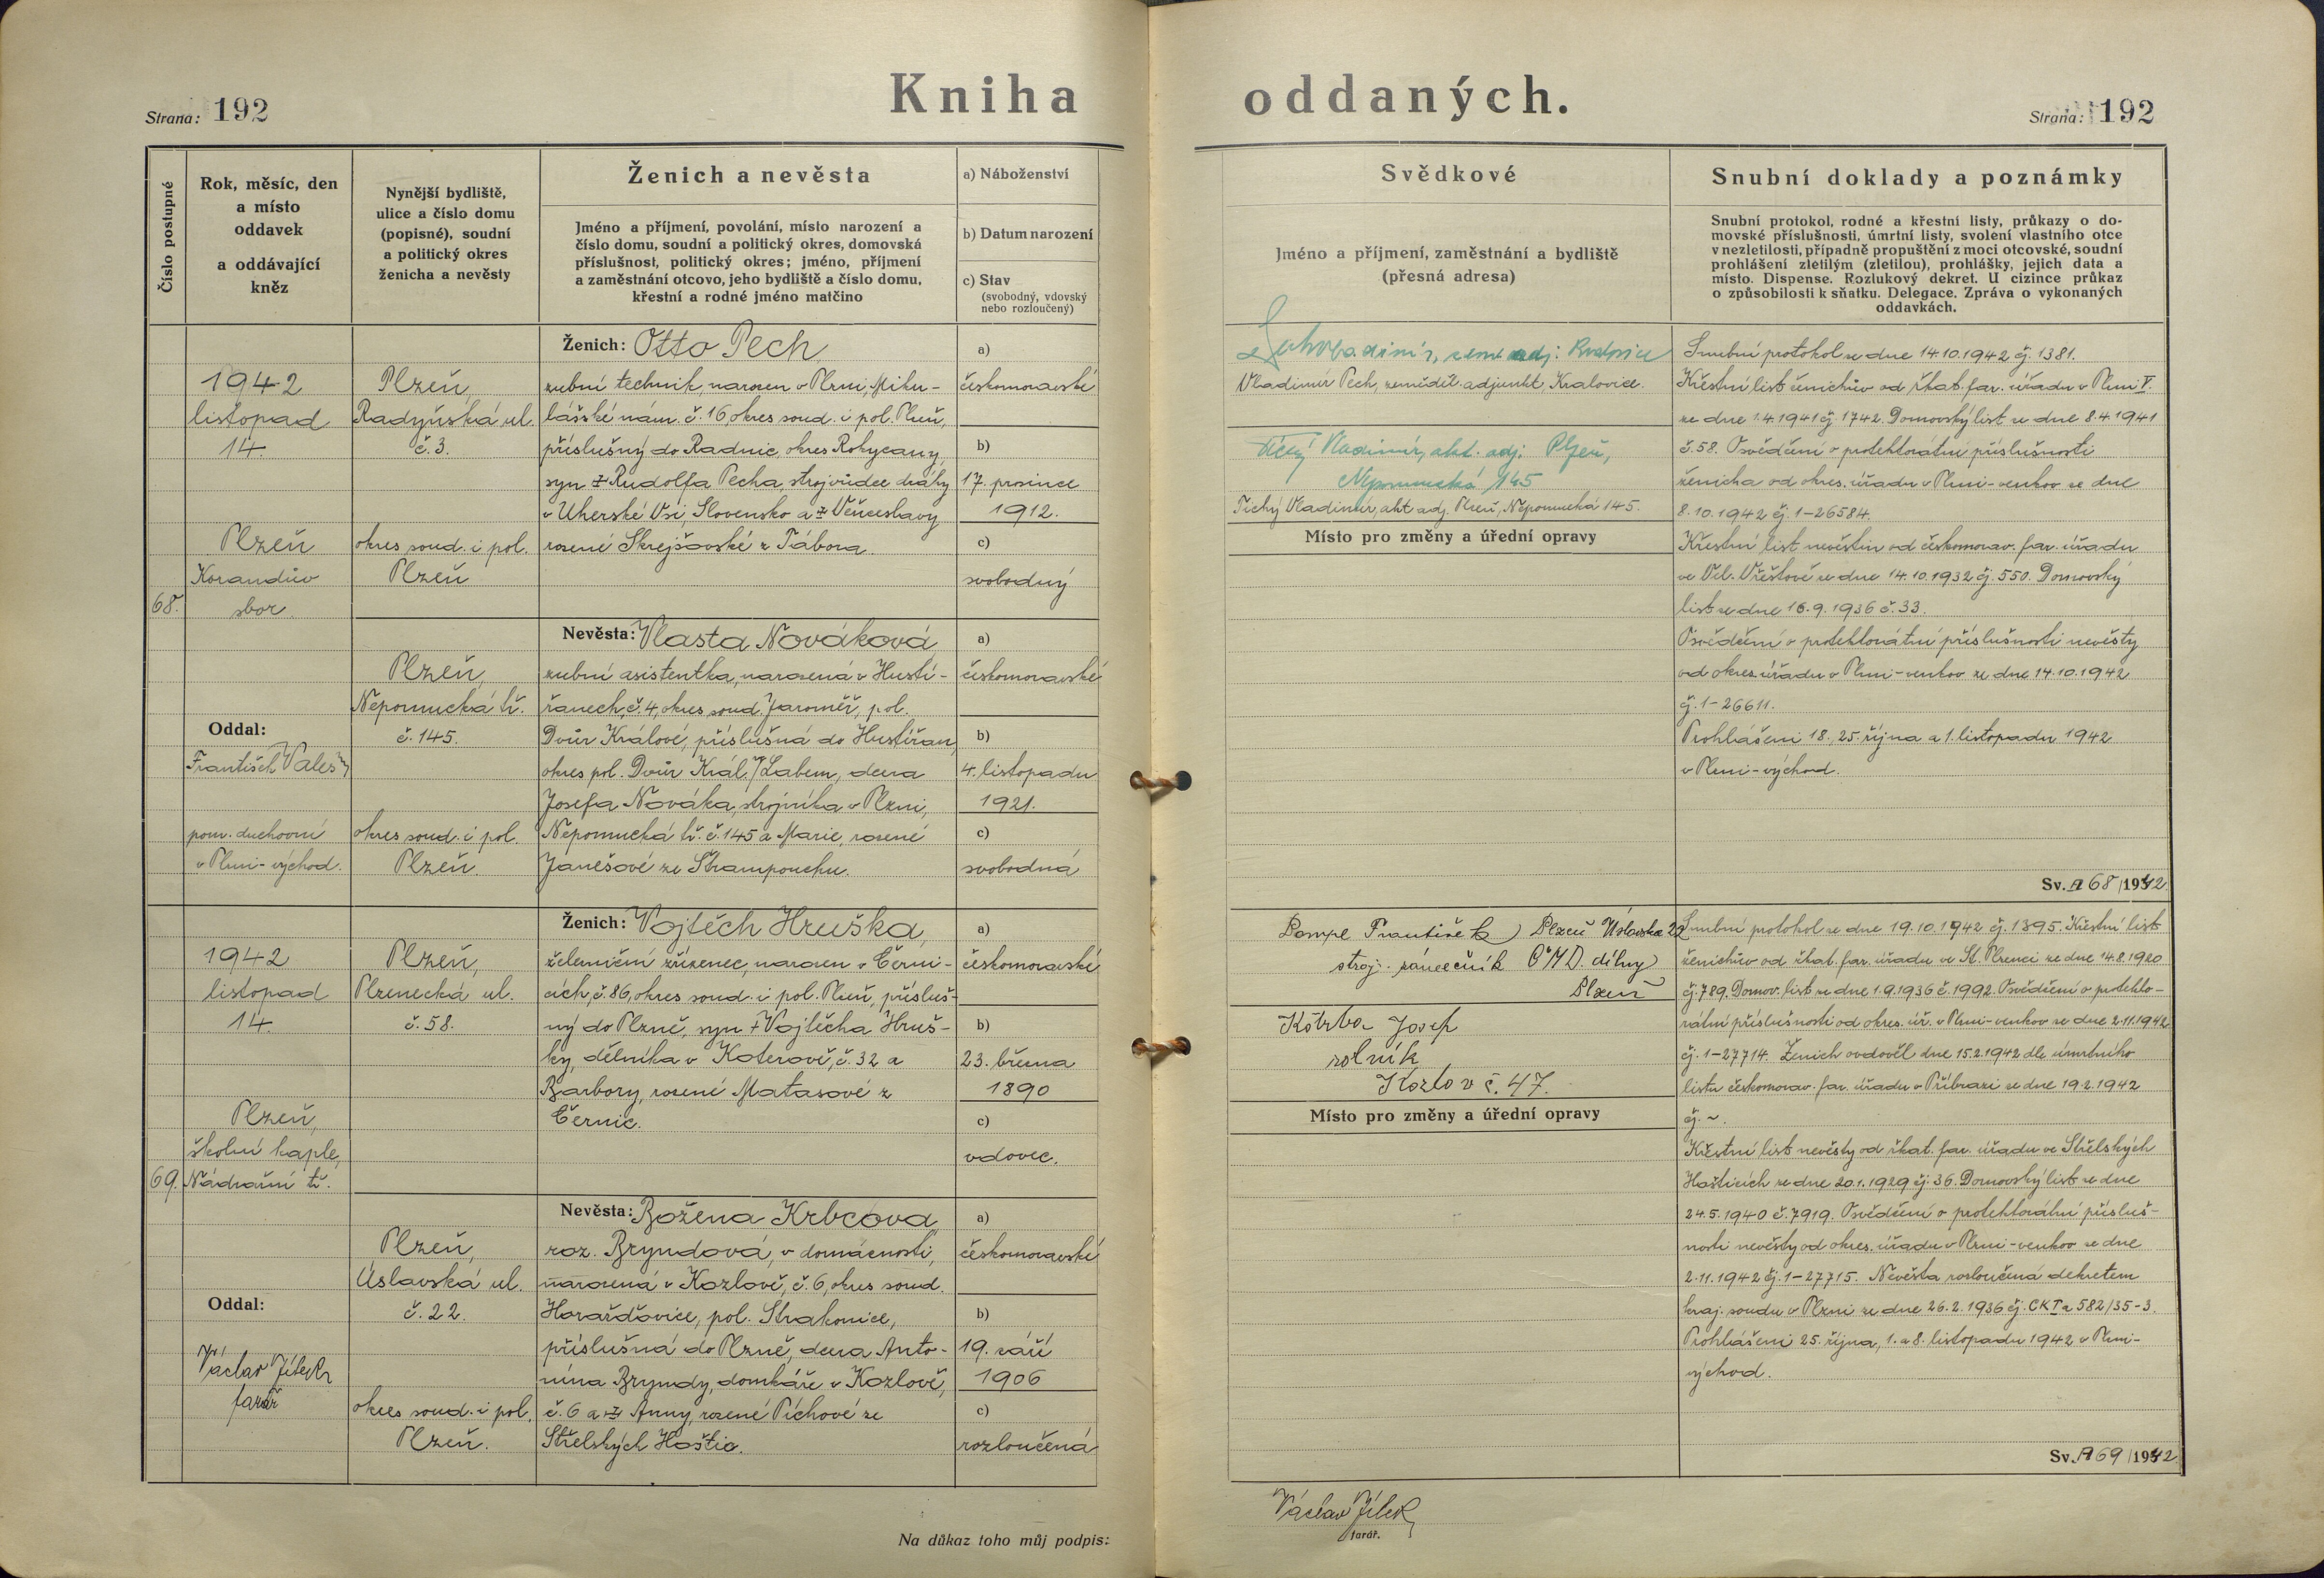 Strana: 192
Kniha
oddaných.
Strana: 192
Číslo postupné
Rok, měsíc, den
a místo
oddavek
a oddávající
kněz
Nynější bydliště,
ulice a číslo domu
(popisné), soudní
a politický okres
ženicha a nevěsty
Ženich a nevěsta
Jméno a příjmení, povolání, místo narození a
číslo domu, soudní a politický okres, domovská
příslušnost, politický okres; jméno, příjmení
a zaměstnání otcovo, jeho bydliště a číslo domu,
křestní a rodné jméno matčino
a) Náboženství
b) Datum narození
c) Stav
(svobodný, vdovský
nebo rozloučený)
68.
1942
listopad
14.
Plzeň
Korandův
sbor.
Oddal:
František Valeš
pom. duchovní
v Plzni-východ.
Plzeň,
Radyňská ul.
č. 3.
okres soud. i pol.
Plzeň
Ženich: Otto Pech,
zubní technik, narozen v Plzni, Miku-
lášské nám. č. 16, okres soud. i pol. Plzeň,
příslušný do Radnic, okres Rokycany,
syn Rudolfa Pecha, strojvůdce dráhy
v Uherské Vsi, Slovensko a Věnceslavy
rozené Skrejšovské z Tábora.
a)
českomoravské
b)
17. prosince
1912.
c)
svobodný
Plzeň,
Nepomucká tř.
č. 145.
okres soud. i pol.
Plzeň.
Nevěsta: Vlasta Nováková
zubní asistentka, narozená v Hustí-
řanech, č. 4, okres soud. Jaroměř, pol.
Dvůr Králové, příslušná do Hustířan,
okres pol. Dvůr Král. n/Labem, dcera
Josefa Nováka, strojníka v Plzni,
Nepomucká tř. č. 145 a Marie, rozené
Janešové ze Štrampouchu.
a)
českomoravské
b)
4. listopadu
1921.
c)
svobodná
69.
1942
listopad
14.
Plzeň,
školní kaple,
Nádražní tř.
Oddal:
Václav Jílek
farář
Plzeň,
Plzenecká ul.
č. 58.
Ženich: Vojtěch Hruška,
železniční zřízenec, narozen v Černi-
cích, č. 86, okres soud. i pol. Plzeň, přísluš-
ný do Plzně, syn † Vojtěcha Hruš-
ky, dělníka v Koterově, č. 32 a
Barbory, rozené Matasové z
Černic.
a)
českomoravské
b)
23. března
1890
c)
vdovec.
Plzeň,
Úslavská ul.
č. 22.
okres soud. i pol.
Plzeň.
Nevěsta: Božena Krbcová,
roz. Bryndová, v domácnosti,
narozená v Kozlově, č. 6, okres soud.
Horažďovice, pol. Strakonice,
příslušná do Plzně, dcera Anto-
nína Bryndy, domkáře v Kozlově,
č. 6 a Anny, rozené Píchové ze
Střelských Hoštic.
a)
českomoravské
b)
19. září
1906
c)
rozloučená
Na důkaz toho můj podpis:
Svědkové
Jméno a příjmení, zaměstnání a bydliště
(přesná adresa)
Vladimír Pech, zeměděl. adjunkt, Kralovice.
Tichý Vladimír, akt. adj. Plzeň,
Nepomucká 145
Tichý Vladimír, akt. adj. Plzeň, Nepomucká 145.
Místo pro změny a úřední opravy
Pompe František Plzeň Úslavská 22
stroj. zámečník ČMD. dílny
Plzeň
Kotrba Josef
rolník
Kozlov č. 47.
Místo pro změny a úřední opravy
Václav Jílek
farář.
Snubní doklady a poznámky
Snubní protokol, rodné a křestní listy, průkazy o do-
movské příslušnosti, úmrtní listy, svolení vlastního otce
v nezletilosti, případně propuštění z moci otcovské, soudní
prohlášení zletilým (zletilou), prohlášky, jejich data a
místo. Dispense. Rozlukový dekret. U cizince průkaz
o způsobilosti k sňatku. Delegace. Zpráva o vykonaných
oddavkách.
Snubní protokol ze dne 14.10.1942 čj. 1381.
Křestní list ženichův od řkat. far. úřadu v Plzni V.
ze dne 1.4.1941 čj. 1742. Domovský list ze dne 8.4.1941
č. 58. Osvědčení o protektorátní příslušnosti
ženicha od okres. úřadu v Plzni-venkov ze dne
8.10.1942 čj. 1-26584.
Křestní list nevěstin od českomorav. far. úřadu
ve Vel. Vřešťově ze dne 14.10.1932 čj. 550. Domovský
list ze dne 16.9.1936 č. 33.
Osvědčení o protektorátní příslušnosti nevěsty
od okres. úřadu v Plzni-venkov ze dne 14.10.1942
čj. 1-26611.
Prohlášeni 18., 25. října a 1. listopadu 1942
v Plzni-východ.
Sv. A 68/1942
Snubní protokol ze dne 19.10.1942 čj. 1395. Křestní list
ženichův od řkat. far. úřadu ve St. Plzenci ze dne 14.8.1920
čj. 789. Domov. list ze dne 1.9.1936 č. 1992. Osvědčení o protekto-
rátní příslušnosti od okres. úř. v Plzni-venkov ze dne 2.11.1942
čj. 1-27714. Ženich ovdověl dne 15.2.1942 dle úmrtního
listu českomorav. far. úřadu v Příbrami ze dne 19.2.1942
čj. ~.
Křestní list nevěsty od řkat. far. úřadu ve Střelských
Hošticích ze dne 20.1.1929 čj. 36. Domovský list ze dne
24.5.1940 č. 7919. Osvědčení o protektorátní přísluš-
nosti nevěsty od okres. úřadu v Plzni-venkov ze dne
2.11.1942 čj. 1-27715. Nevěsta rozloučená dekretem
kraj. soudu v Plzni ze dne 26.2.1936 čj. Ck Ia 582/35-3.
Prohlášeni 25. října, 1. a 8. listopadu 1942 v Plzni-
východ.
Sv. A 69/1942